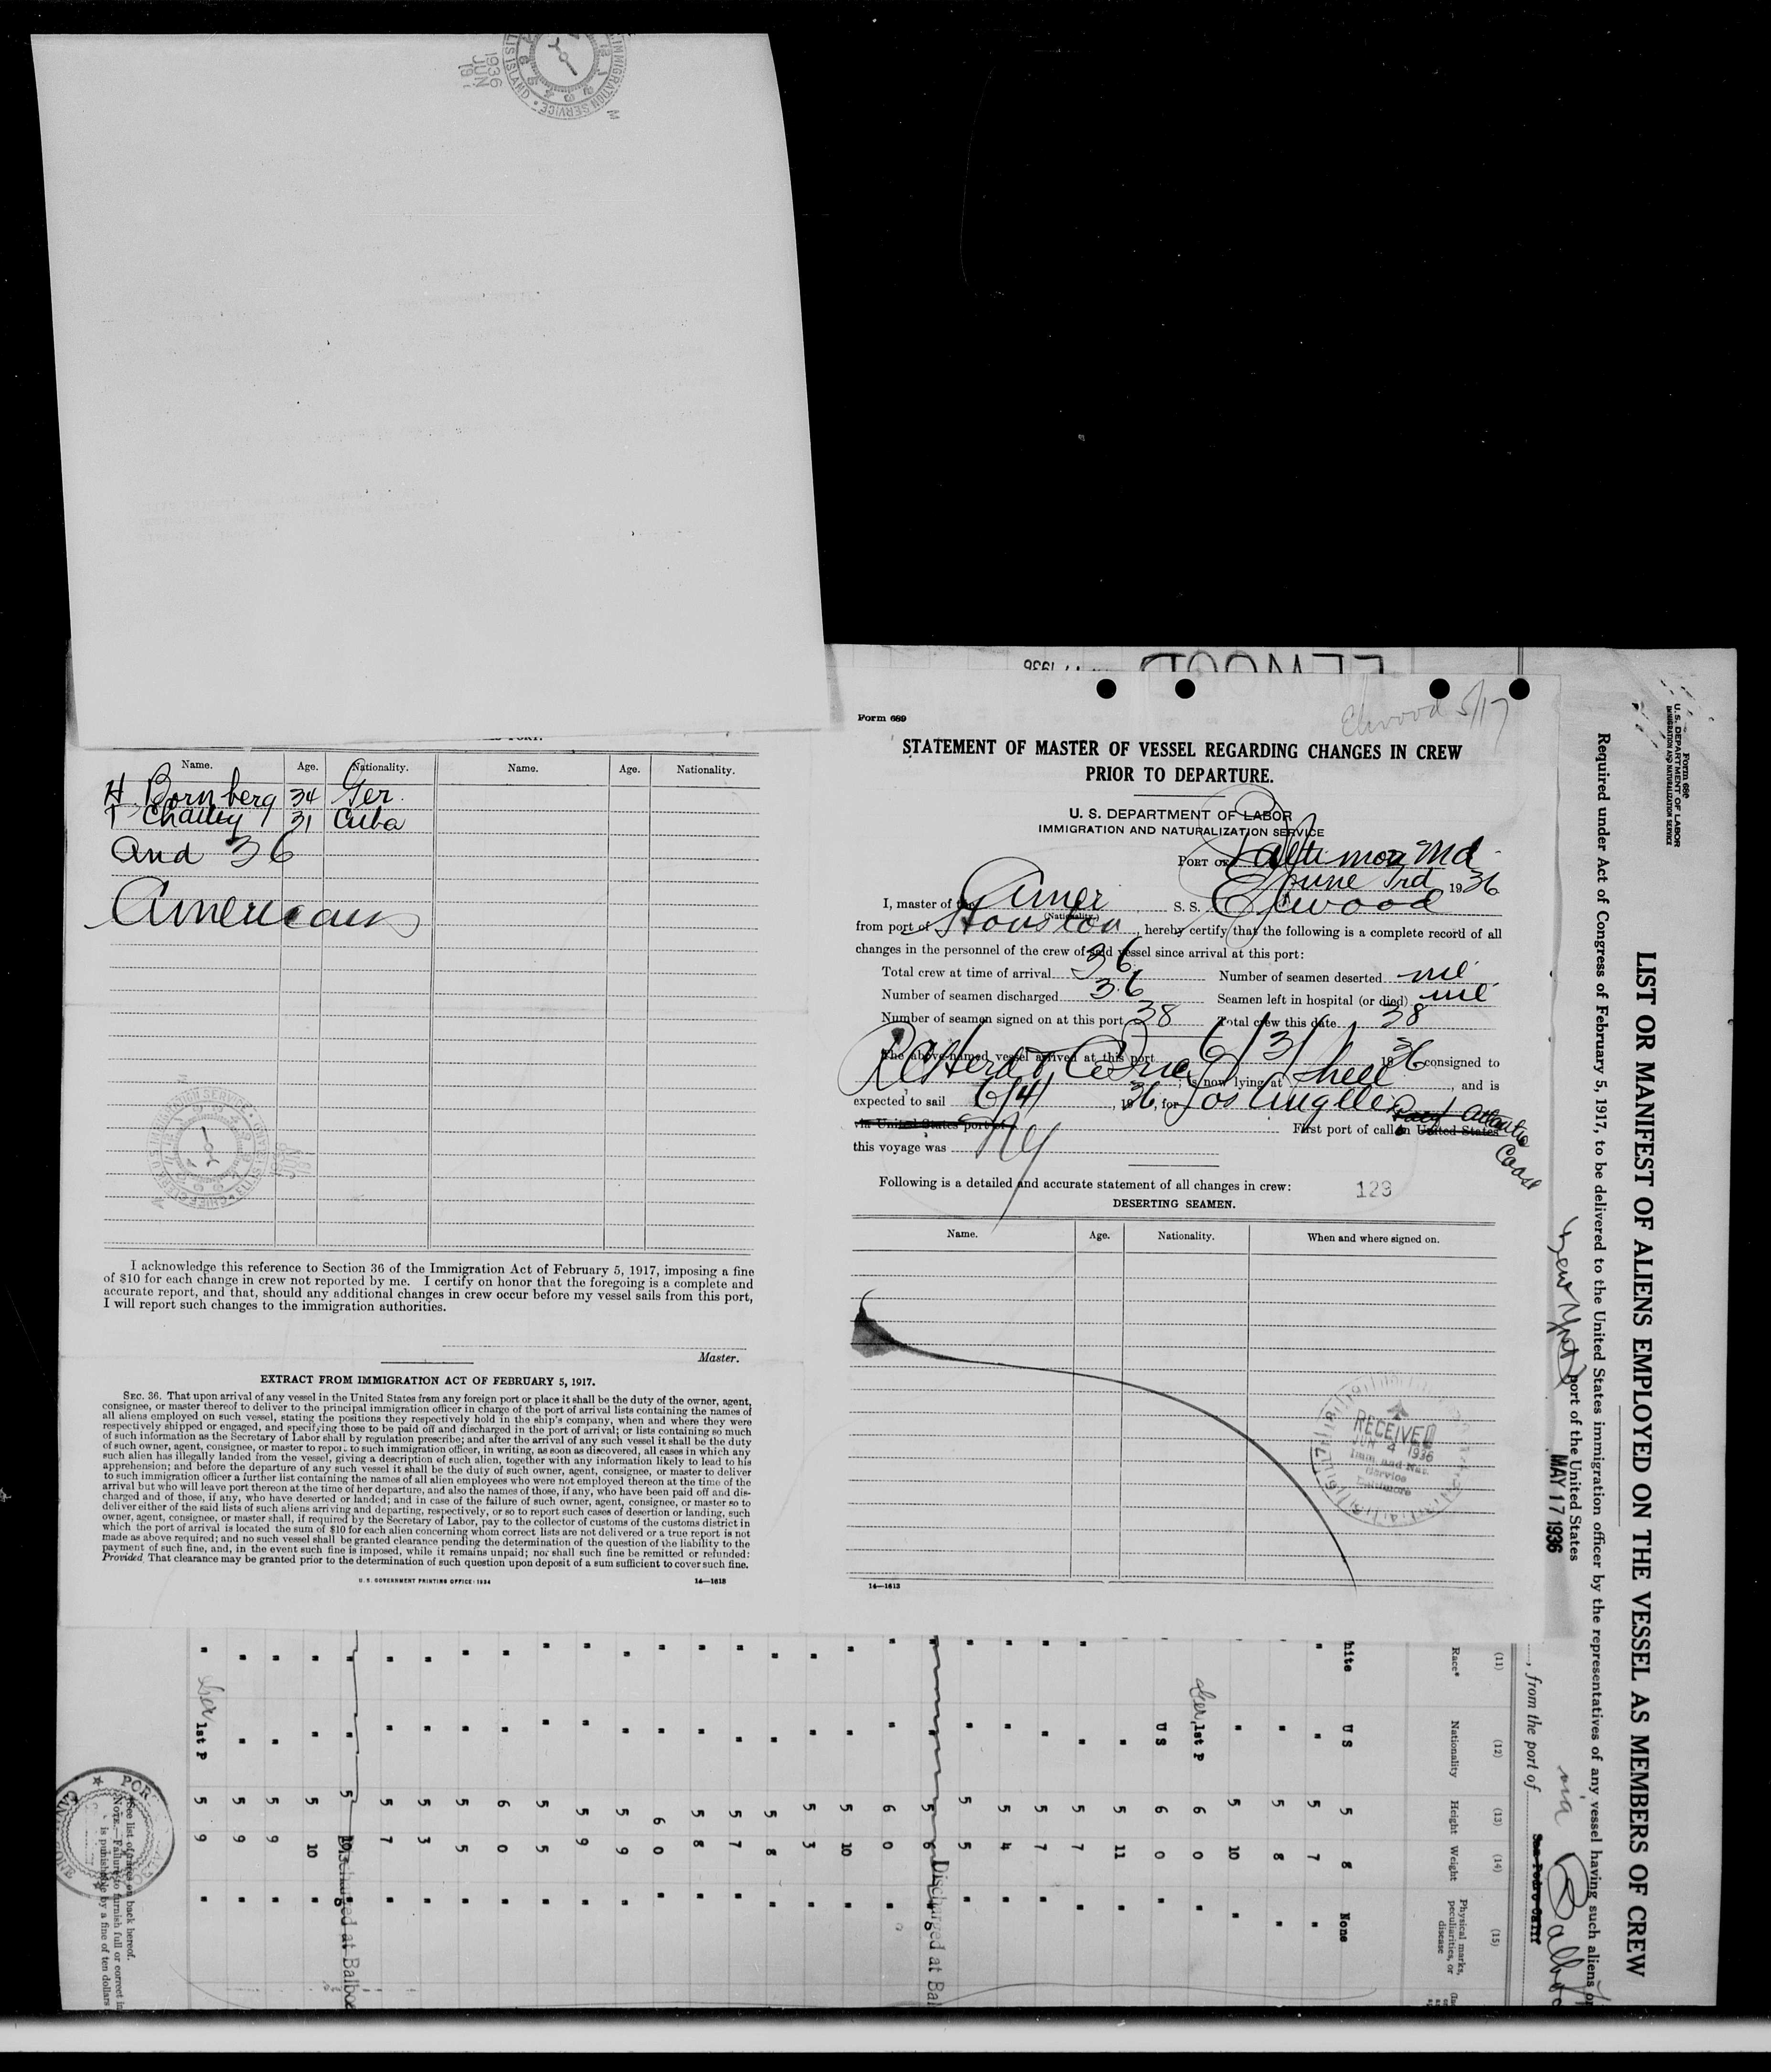 IMMIGRATION SERVICE
1936
JUN
ELLWOOD
Name. Age. Nationality. Name. Age. Nationality.
H. Bornberg 34 Ger.
31 Cuba
and 36
Americans
I acknowledge this reference to Section 36 of the Immigration Act of February 5, 1917, imposing a fine
of $10 for each change in crew not reported by me. I certify on honor that the foregoing is a complete and
accurate report, and that, should any additional changes in crew occur before my vessel sails from this port,
I will report such changes to the immigration authorities.
Master.
EXTRACT FROM IMMIGRATION ACT OF FEBRUARY 5, 1917.
SEC. 36. That upon arrival of any vessel in the United States from any foreign port or place it shall be the duty of the owner, agent,
consignee, or master thereof to deliver to the principal immigration officer in charge of the port of arrival lists containing the names of
all aliens employed on such vessel, stating the positions they respectively hold in the ship's company, when and where they were
respectively shipped or engaged, and specifying those to be paid off and discharged in the port of arrival; or lists containing so much
of such information as the Secretary of Labor shall by regulation prescribe; and after the arrival of any such vessel it shall be the duty
of such owner, agent, consignee, or master to report to such immigration officer, in writing, as soon as discovered, all cases in which any
such alien has illegally landed from the vessel, giving a description of such alien, together with any information likely to lead to his
apprehension; and before the departure of any such vessel it shall be the duty of such owner, agent, consignee, or master to deliver
to such immigration officer a further list containing the names of all alien employees who were not employed thereon at the time of the
arrival but who will leave port thereon at the time of her departure, and also the names of those, if any, who have been paid off and dis-
charged and of those, if any, who have deserted or landed; and in case of the failure of such owner, agent, consignee, or master so to
deliver either of the said lists of such aliens arriving and departing, respectively, or so to report such cases of desertion or landing, such
owner, agent, consignee, or master shall, if required by the Secretary of Labor, pay to the collector of customs of the customs district in
which the port of arrival is located the sum of $10 for each alien concerning whom correct lists are not delivered or a true report is not
made as above required; and no such vessel shall be granted clearance pending the determination of the question of the liability to the
payment of such fine, and, in the event such fine is imposed, while it remains unpaid; nor shall such fine be remitted or refunded:
Provided, That clearance may be granted prior to the determination of such question upon deposit of a sum sufficient to cover such fine.
U. S. GOVERNMENT PRINTING OFFICE: 1934 14—1613
Form 689
Elwood 5/17
STATEMENT OF MASTER OF VESSEL REGARDING CHANGES IN CREW
PRIOR TO DEPARTURE.
U. S. DEPARTMENT OF LABOR
IMMIGRATION AND NATURALIZATION SERVICE
PORT OF Baltimore Md
June 3rd 1936
I, master of the Amer S. S. Elwood
(Nationality.)
from port of Houston, hereby certify that the following is a complete record of all
changes in the personnel of the crew of said vessel since arrival at this port:
Total crew at time of arrival 36 Number of seamen deserted nil
Number of seamen discharged 36 Seamen left in hospital (or died) nil
Number of seamen signed on at this port 38 Total crew this date 38
The above-named vessel arrived at this port 6/3/ 1936 consigned to
is now lying at , and is
expected to sail 6/4/, 1936, for Los Angeles
via United States port of First port of call in United States
Atlantic
Coast
this voyage was NY
Following is a detailed and accurate statement of all changes in crew: 123
DESERTING SEAMEN.
Name. Age. Nationality. When and where signed on.
RECEIVED
JUN 4 1936
Imm. and Nat.
Service
Baltimore
14—1613
Form 680
U. S. DEPARTMENT OF LABOR
IMMIGRATION AND NATURALIZATION SERVICE
LIST OR MANIFEST OF ALIENS EMPLOYED ON THE VESSEL AS MEMBERS OF CREW
Required under Act of Congress of February 5, 1917, to be delivered to the United States immigration officer by the representatives of any vessel having such aliens on
New York port of the United States MAY 17 1936
, from the port of San Pedro Calif via Balboa
(11) (12) (13) (14) (15)
Race* Nationality Height Weight Physical marks, peculiarities, or disease
hite U S 5 8 None
" " 5 7 "
" 5 8 "
" 5 10 "
Ger 1st P 6 0 "
U S 6 0 "
" 5 11 "
" " 5 7 "
" " 5 7 "
" " 5 4 "
" " 5 5 "
" " 5 6 " Discharged at Bal
" " 6 0 "
" " 5 10 "
" " 5 3 "
" " 5 8 "
" " 5 7 "
" " 5 8 "
" " 6 0 "
" " 5 9 "
" " 5 9 "
" " 5 5 "
" " 6 0 "
" " 5 5 "
" " 5 3 "
" " 5 7 "
" " 5 10 " Discharged at Balboa
" " 5 10 "
" " 5 9 "
" " 5 9 "
" Ger 1st P 5 9 "
*See list of races on back hereof.
NOTE.—Failure to furnish full or correct in
is punishable by a fine of ten dollars